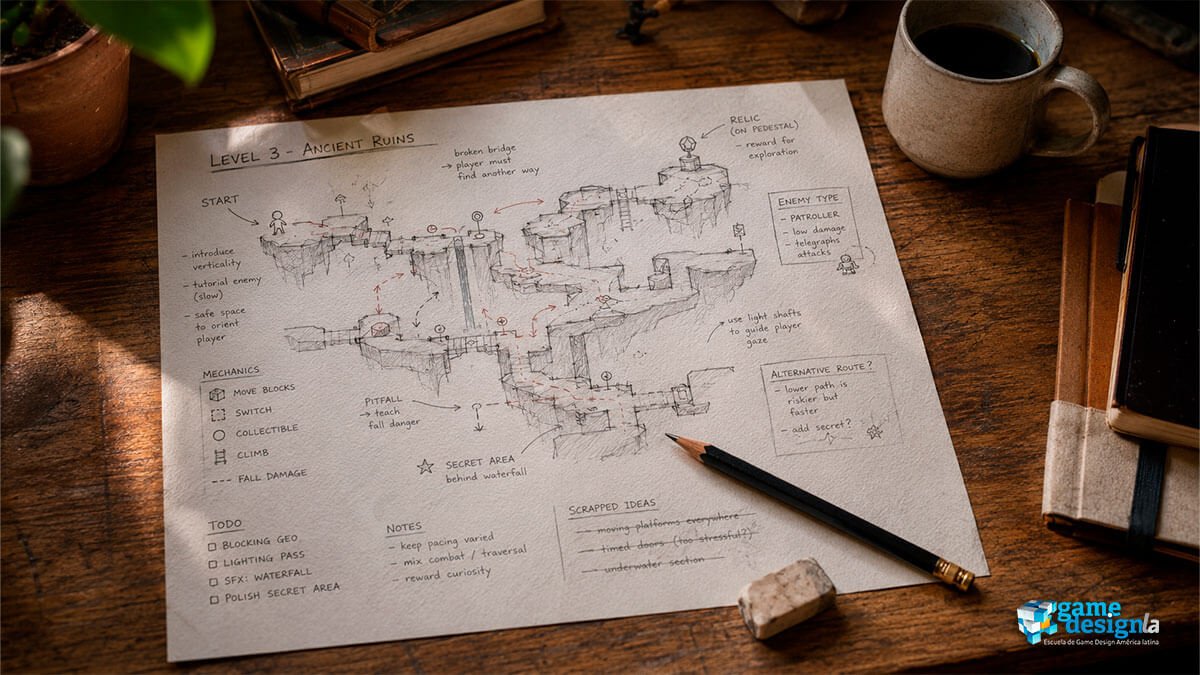 LEVEL 3 - ANCIENT RUINS
START
- introduce
verticality
- tutorial enemy
(slow)
- safe space
to orient
player
broken bridge
→ player must
find another way
RELIC
(ON PEDESTAL)
- reward for
exploration
ENEMY TYPE
- PATROLLER
- low damage
- telegraphs
attacks
use light shafts
to guide player
gaze
MECHANICS
MOVE BLOCKS
SWITCH
COLLECTIBLE
CLIMB
FALL DAMAGE
PITFALL
→ teach
fall danger
SECRET AREA
behind waterfall
ALTERNATIVE ROUTE?
- lower path is
riskier but
faster
- add secret?
TODO
BLOCKING GEO
LIGHTING PASS
SFX: WATERFALL
POLISH SECRET AREA
NOTES
- keep pacing varied
- mix combat / traversal
- reward curiosity
SCRAPPED IDEAS
- moving platforms everywhere
- timed doors (too stressful?)
- underwater section
game
designla
Escuela de Game Design América latina